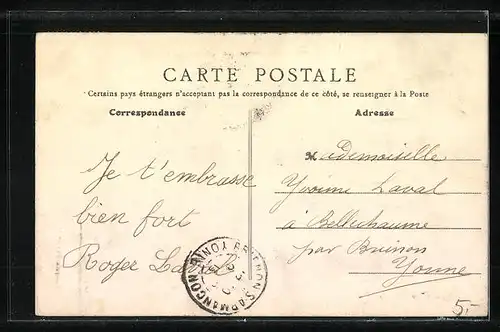 CARTE POSTALE
Certains pays étrangers n'acceptent pas la correspondance de ce côté, se renseigner à la Poste
Correspondance
Adresse
Je t'embrasse
bien fort
Roger Laval
Mademoiselle
Yvonne Laval
à Bellechaume
par Brienon
Yonne
5.-